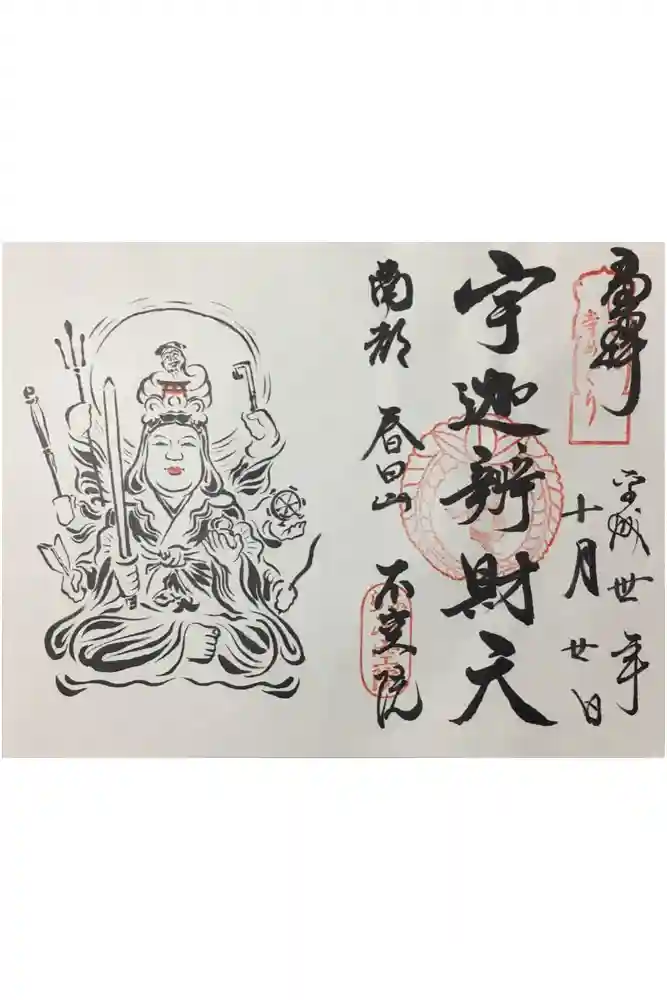 奉拝
平成卅年
十月廿日
宇迦辨財天
南都 春日山 不空院